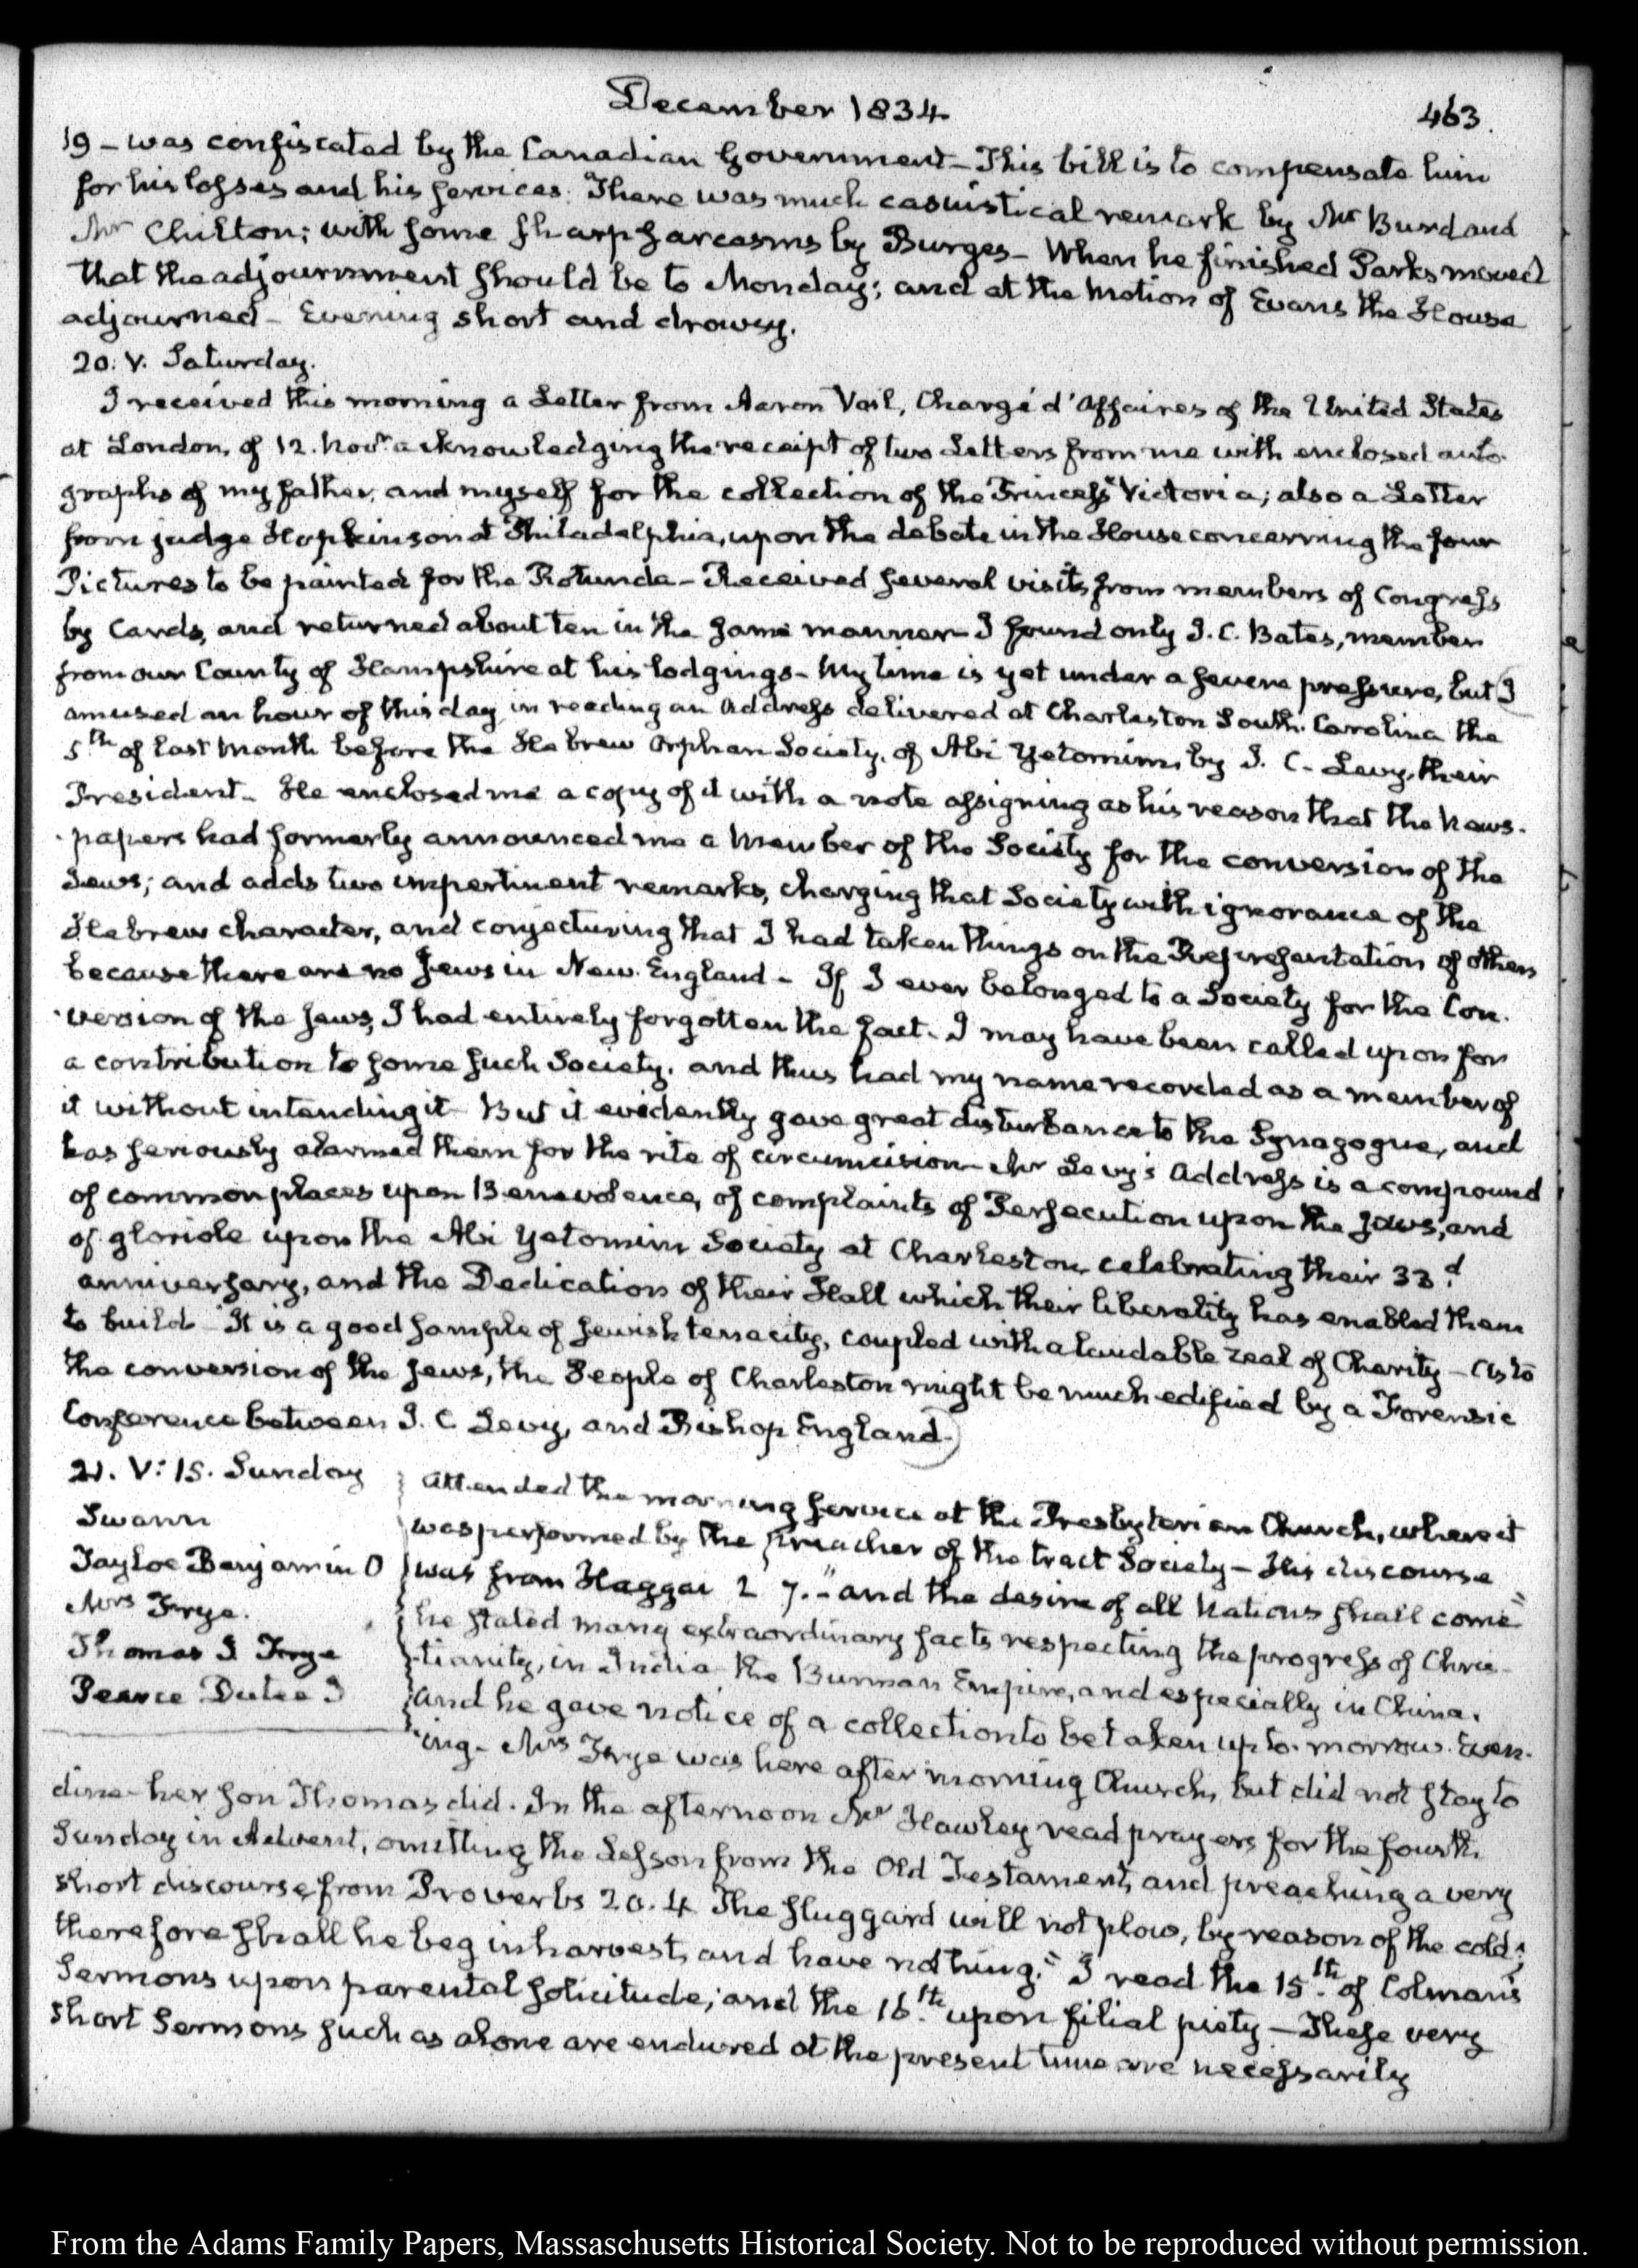 December 1834
463.
19 – was confiscated by the Canadian Government – This bill is to compensate him
for his losses and his services. There was much casuistical remark by Mr Burd and
Mr Chilton; with some sharp sarcasms by Burges – When he finished Parks moved
that the adjournment should be to Monday; and at the motion of Evans the House
adjourned – Evening short and drowsy.
20. V. Saturday.
I received this morning a Letter from Aaron Vail, Chargé d'Affaires of the United States
at London, of 12. Novr. acknowledging the receipt of two Letters from me with enclosed auto-
graphs of my father, and myself for the collection of the Princess Victoria; also a Letter
from judge Hopkinson at Philadelphia, upon the debate in the House concerning the four
Pictures to be painted for the Rotunda – Received several visits from members of Congress
by Cards, and returned about ten in the same manner – I found only I. C. Bates, member
from our County of Hampshire at his lodgings – My time is yet under a severe pressure, but I
amused an hour of this day in reading an Address delivered at Charleston South Carolina the
5th of last Month before the Hebrew Orphan Society, of Abi Yetomim, by J. C. Levy, their
President – He enclosed me a copy of it with a note assigning as his reason that the News-
papers had formerly announced me a Member of the Society for the conversion of the
Jews; and adds two impertinent remarks, charging that Society with ignorance of the
Hebrew character, and conjecturing that I had taken things on the Representation of others
because there are no Jews in New-England – If I ever belonged to a Society for the Con-
version of the Jews, I had entirely forgotten the fact. I may have been called upon for
a contribution to some such Society, and thus had my name recorded as a member of
it without intending it – But it evidently gave great disturbance to the Synagogue, and
has seriously alarmed them for the rite of circumcision – Mr Levy's Address is a compound
of common places upon Benevolence, of complaints of Persecution upon the Jews, and
of gloriole upon the Abi Yetomim Society at Charleston, celebrating their 33d.
anniversary, and the Dedication of their Hall which their liberality has enabled them
to build – It is a good sample of Jewish tenacity, coupled with a laudable zeal of Charity – As to
the conversion of the Jews, the People of Charleston might be much edified by a Forensic
Conference between J. C. Levy, and Bishop England.
21. V: 15. Sunday
Swann
Tayloe Benjamin O
Mrs Frye.
Thomas J Frye
Pearce Dutee J
Attended the morning service at the Presbyterian Church, where it
was performed by the Preacher of the tract Society – His discourse
was from Haggai 2 7. "and the desire of all Nations shall come"
he stated many extraordinary facts respecting the progress of Chris-
tianity, in India the Burman Empire, and especially in China.
And he gave notice of a collection to be taken up to-morrow Even-
ing – Mrs Frye was here after morning Church, but did not stay to
dine – her son Thomas did. In the afternoon Mr Hawley read prayers for the fourth
Sunday in Advent, omitting the Lesson from the Old Testament, and preaching a very
short discourse from Proverbs 20. 4 The sluggard will not plow, by reason of the cold;
therefore shall he beg in harvest, and have nothing." I read the 15th. of Colman's
Sermons upon parental solicitude; and the 16th. upon filial piety – These very
short Sermons such as alone are endured at the present time are necessarily
From the Adams Family Papers, Massachusetts Historical Society. Not to be reproduced without permission.